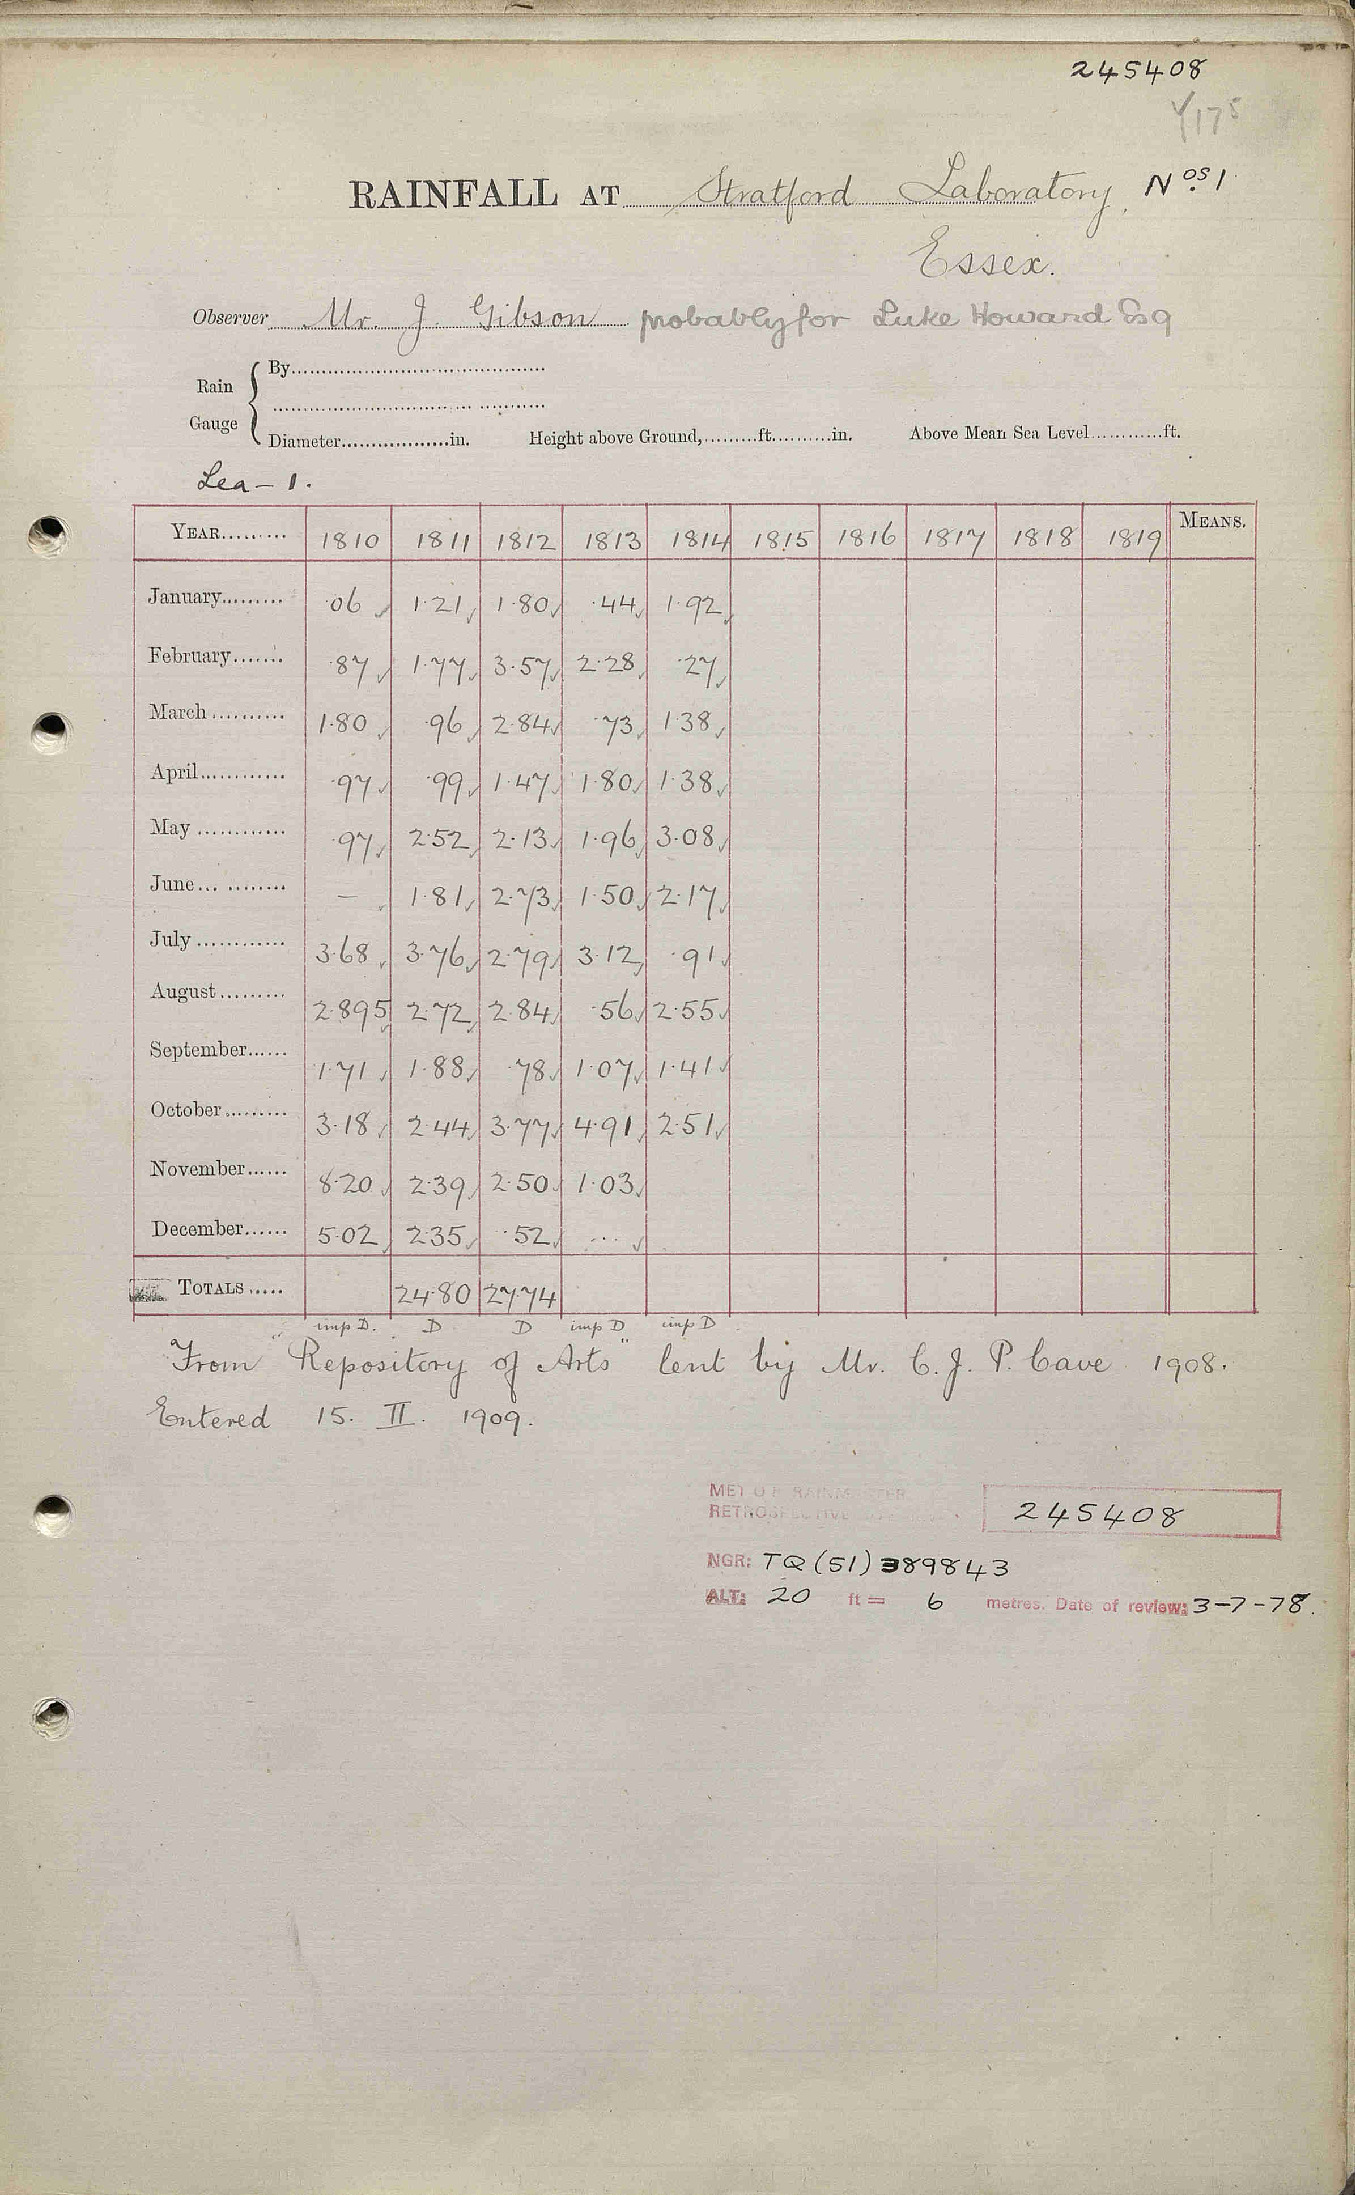 245408
Y175
RAINFALL AT Stratford Laboratory, Nos 1.
Essex.
Observer Mr. J. Gibson probably for Luke Howard Esq
Rain Gauge { By
Diameter in. Height above Ground, ft. in. Above Mean Sea Level ft.
Lea – 1.
YEAR 1810 1811 1812 1813 1814 1815 1816 1817 1818 1819 MEANS.
January ·06 1·21 1·80 ·44 1·92
February ·87 1·77 3·57 2·28 ·27
March 1·80 ·96 2·84 ·73 1·38
April ·97 ·99 1·47 1·80 1·38
May ·97 2·52 2·13 1·96 3·08
June — 1·81 2·73 1·50 2·17
July 3·68 3·76 2·79 3·12 ·91
August 2·895 2·72 2·84 ·56 2·55
September 1·71 1·88 ·78 1·07 1·41
October 3·18 2·44 3·77 4·91 2·51
November 8·20 2·39 2·50 1·03
December 5·02 2·35 ·52 ...
TOTALS 24·80 27·74
imp D. D D imp D imp D
From "Repository of Arts" lent by Mr. C. J. P. Cave 1908.
Entered 15. II. 1909.
MET O RAINMASTER
RETROSPECTIVE 245408
NGR: TQ (51) 389843
ALT: 20 ft = 6 metres. Date of review: 3-7-78.